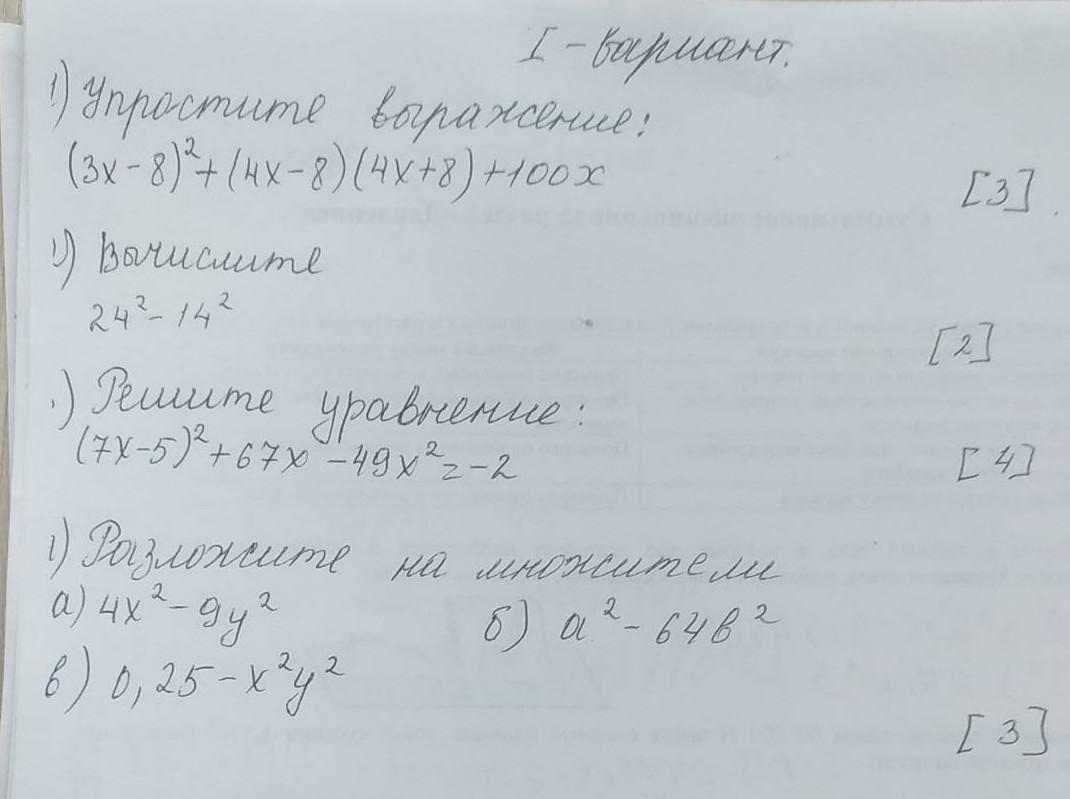 I - вариант.
1) Упростите выражение:
(3x - 8)² + (4x - 8)(4x + 8) + 100x [3]
) Вычислите
24² - 14² [2]
) Решите уравнение:
(7x - 5)² + 67x - 49x² = -2 [4]
) Разложите на множители
а) 4x² - 9y² б) a² - 64b²
в) 0,25 - x²y²
[3]